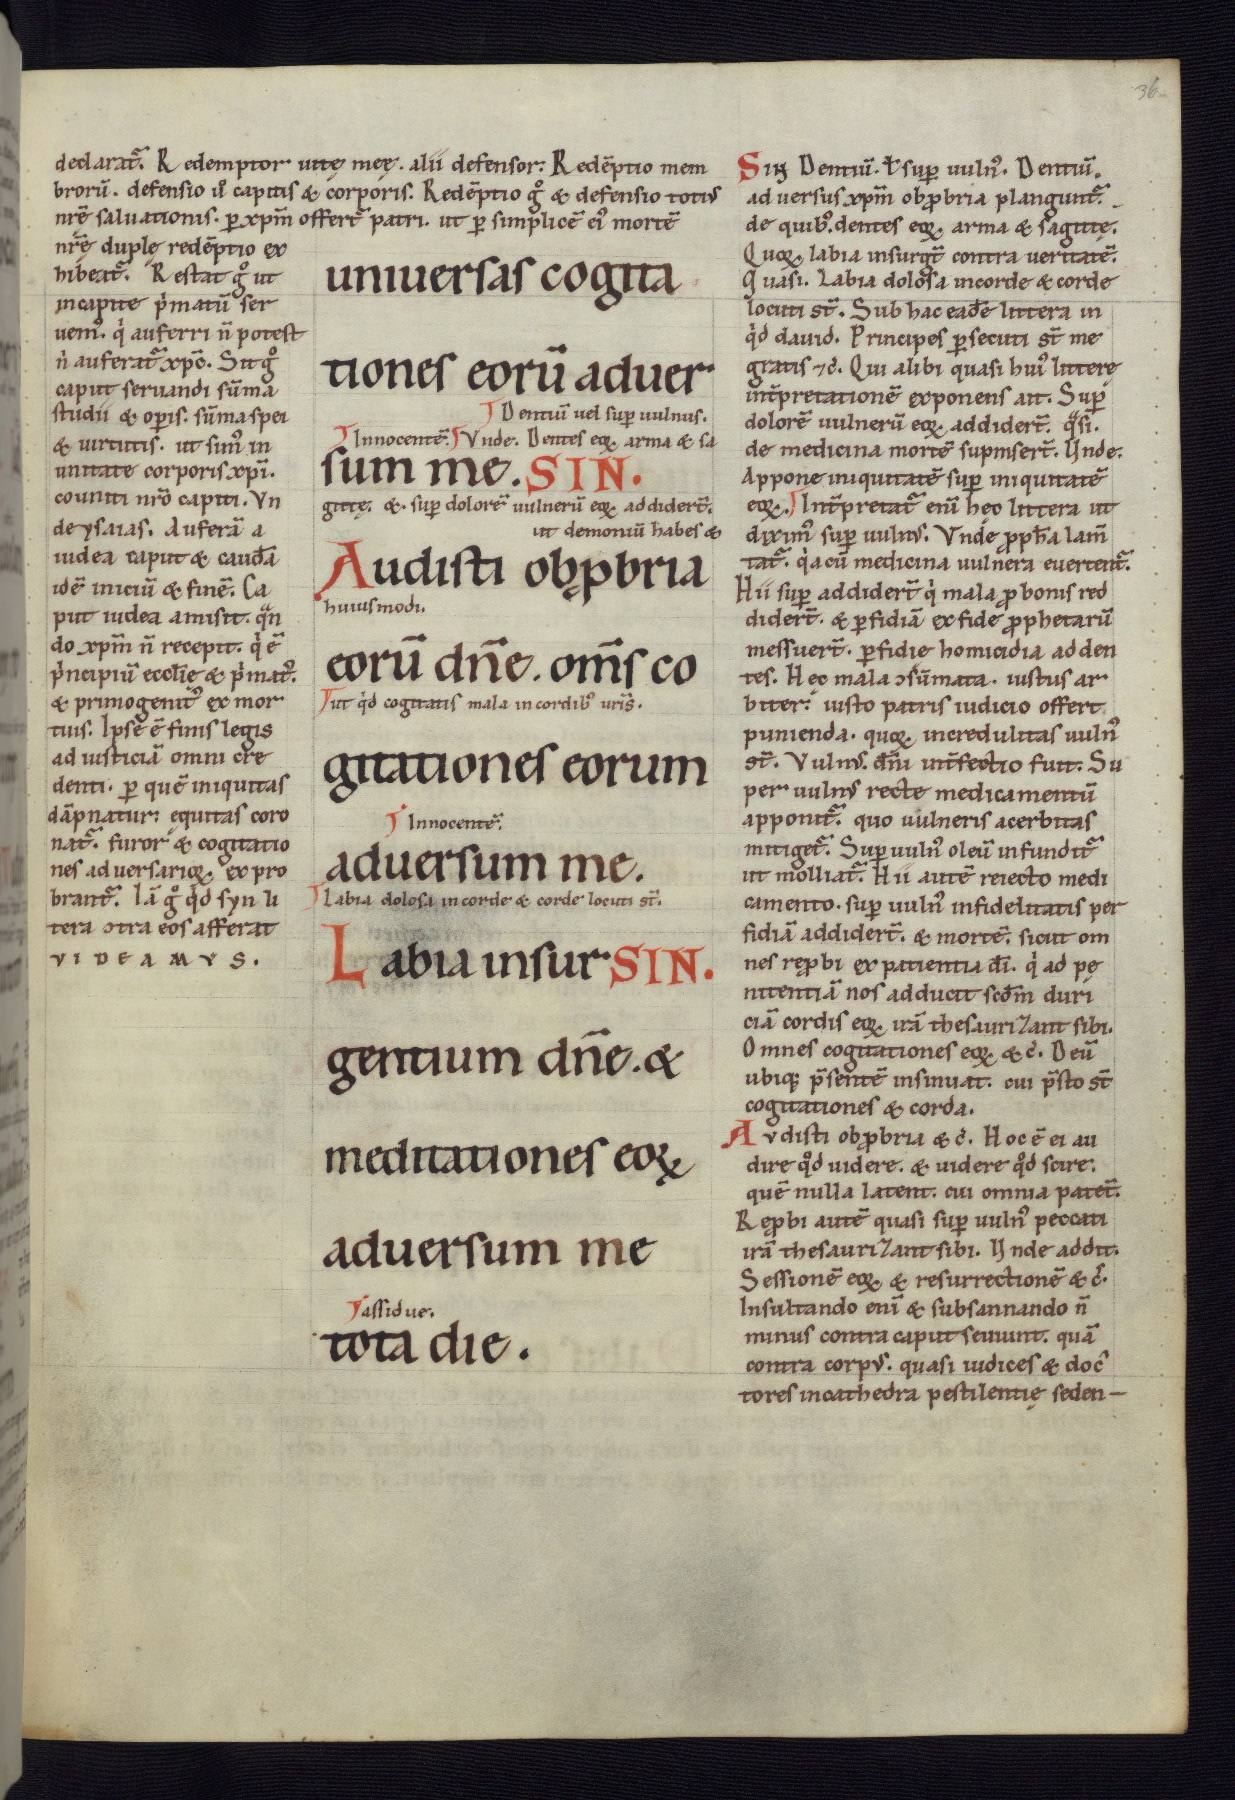 36
declarat᷑. Redemptor uitę meę. alii defensor: Redēptio mem
brorū. defensio ul̕ capitis & corporis. Redēptio gͦ & defensio totiꝰ
nr̄ę saluationis. ꝑ xp̄m offert᷑ patri. ut ꝑ simplicē eiꝰ mortē
nr̄ę duplę redēptio ex
hibeat᷑. Restat gͦ ut
in capite p̍matū ser
uemꝰ. q̍ auferri n̄ potest
n̍ auferat᷑ xp̄c. Sit gͦ
caput seruandi sūma
studii & oꝑis. sūma spei
& uirtutis. ut simꝰ in
unitate corporis xp̄i.
couniti nr̄o capiti. Vn
de ysaias. Auferā a
iudea caput & caudā
idē iniciū & finē. Ca
put iudea amisit. qᷓn
do xp̄m n̄ recepit. q̍ ē
p̍ncipiū eccl̄ię & p̍matꝰ.
& primogenitꝰ ex mor
tuis. Ipse ē finis legis
ad iusticiā omni cre
denti. ꝑ quē iniquitas
dāpnatur: equitas coro
nat᷑. furor & cogitatio
nes aduersarioꝝ. expro
brant᷑. Iā gͦ qd̍ syn li
tera ɔtra eos afferat
VIDEAMVS.
uniuersas cogita
tiones eorū aduer
Dentiū uel suꝑ uulnus.
Innocentē. Vnde. Dentes eoꝝ arma & sa
sum me. SIN.
gittę. &. suꝑ dolorē uulnerū eoꝝ addidert̄.
ut demoniū habes &
Audisti obꝓbria
huiusmodi.
eorū dn̄e. om̄s co
ut qd̍ cogitatis mala in cordibꝰ ur̄is.
gitationes eorum
Innocentē.
aduersum me.
Labia dolosa in corde & corde locuti st̄.
Labia insur SIN.
gentium dn̄e. &
meditationes eoꝝ
aduersum me
assidue.
tota die.
SIN Dentiū. ul̕ suꝑ uulnꝰ. Dentiū.
aduersus xp̄m obꝓbria plangunt᷑.
de quibꝰ. dentes eoꝝ arma & sagittę.
Quoꝝ labia insurgt̄ contra ueritatē.
Quasi. Labia dolosa in corde & corde
locuti st̄. Sub hac eadē littera in
qd̍ dauid. Principes ꝑsecuti st̄ me
gratis ⁊c̄. Qui alibi quasi huiꝰ litterę
int̄pretationē exponens ait. Suꝑ
dolorē uulnerū eoꝝ addidert̄. qᷓsi.
de medicina mortē supmisert̄. Unde.
Appone iniquitatē suꝑ iniquitatē
eoꝝ. Int̄pretat᷑ enī hęc littera ut
diximꝰ suꝑ uulnꝰ. Vnde ꝓph̄a lam̄
tat᷑. q̍a cū medicina uulnera euertent᷑.
Hii suꝑ addidert̄ q̍ mala ꝓ bonis red
didert̄. & ꝑfidiā ex fide ꝓphetarū
messuert̄. ꝑfidie homicidia adden
tes. Hęc mala ɔsūmata. iustus ar
biter: iusto patris iudicio offert
punienda. quoꝝ incredulitas uulnꝰ
st̄. Vulnꝰ. dn̄i int̄fectio fuit. Su
per uulnꝰ recte medicamentū
apponit᷑. quo uulneris acerbitas
mitiget᷑. Suꝑ uulnꝰ oleū infundit᷑
ut molliat᷑. Hii autē reiecto medi
camento. suꝑ uulnꝰ infidelitatis per
fidiā addidert̄. & mortē. sicut om
nes reꝓbi ex patientia dī. q̍ ad pę
nitentiā nos adducit scd̄m duri
ciā cordis eoꝝ irā thesaurizant sibi.
Omnes cogitationes eoꝝ & c̄. Deū
ubiqꝫ p̄sentē insinuat. cui p̄sto st̄
cogitationes & corda.
Avdisti obꝓbria & c̄. Hoc ē ei au
dire qͦd uidere. & uidere qͦd scire.
quē nulla latent. cui omnia patēt.
Reꝓbi autē quasi suꝑ uulnꝰ peccati
irā thesaurizant sibi. Unde addit.
Sessionē eoꝝ & resurrectionē & c̄.
Insultando enī & subsannando n̄
minus contra caput seuiunt. quā
contra corpꝰ. quasi iudices & doc
tores in cathedra pestilentię seden